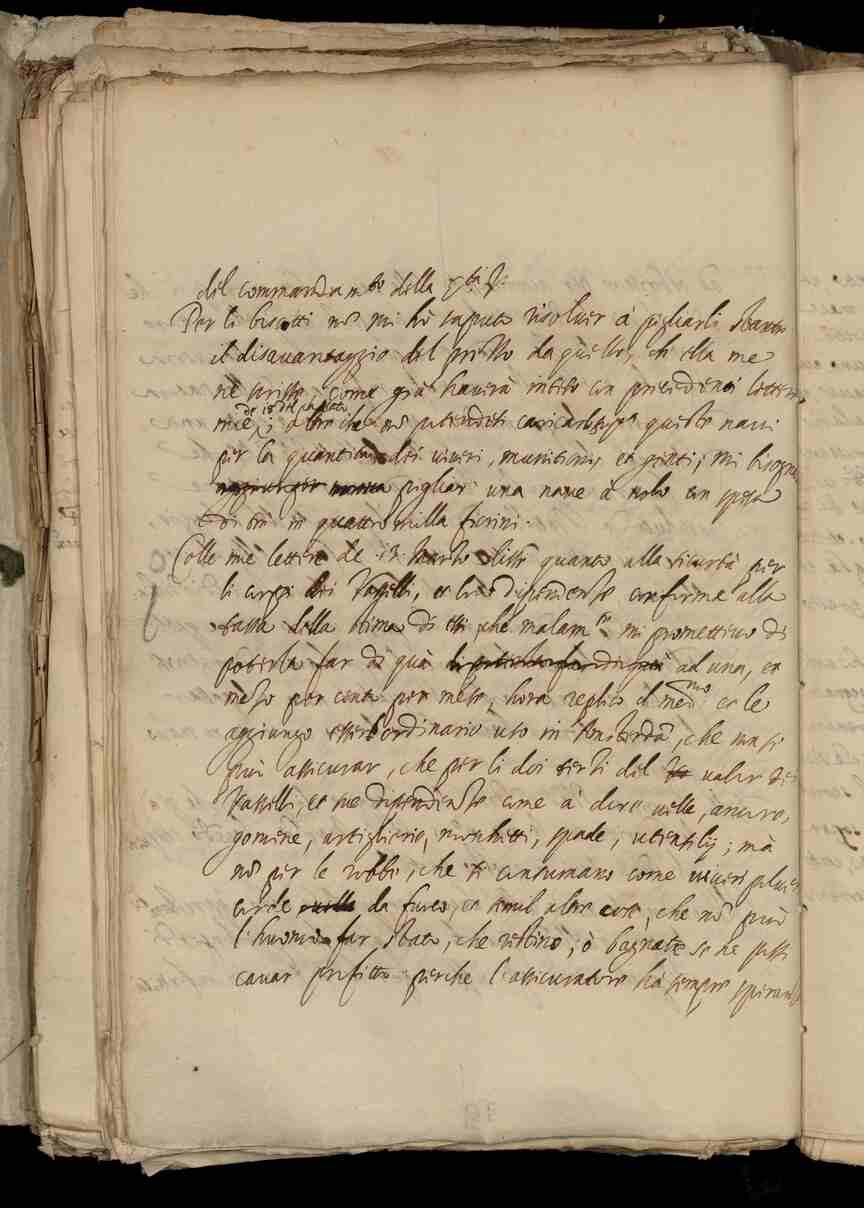 del commandam.to della
Per li biscotti nō mi hò saputo risolver à pigliarli stante
il disavantaggio del prezzo da quello, ch ella me
ne scrisse, come già haverà inteso con precedenti lettere
mie, de 10 del passato; oltre che nō potendosi caricar queste navi
per la quantità dei viveri, munitioni, et genti; mi bisogna
pigliar una nave à nolo con spesa
di in quattro milla fiorini.
Colle mie lettere de .13. Marzo dissi quanto alla sicurtà per
li corpi dei Vasselli, et loro dipendenze conforme alla
tassa della stima di essi che malam.te mi promettevo di
poterla far di quà ad una, et
mezo per cento per mese, hora replico il med.mo et le
aggiungo esser ordinario uso in Amsterdā, che non si
può assicurar, che per li doi terzi del valor dei
Vasselli, et sue dipendenze come à dire velle, ancore,
gomine, artiglierie, moschetti, spade, utensilij; mà
nō per le robbe, che si consumano come viveri polvere
corde da fuoco, et simil altre cose, che nō può
l'huomo far stato, che restino, ò bagnate se ne possi
cavar profitto perche l'assicuratore hà sempre speranza